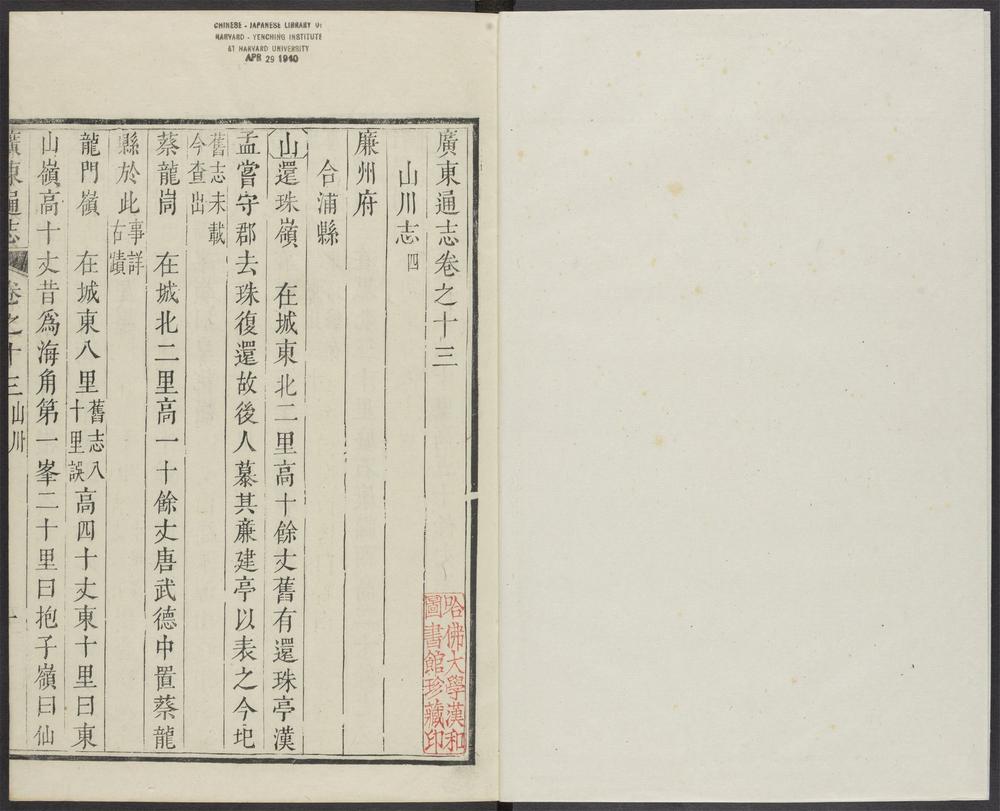 CHINESE - JAPANESE LIBRARY OF
HARVARD - YENCHING INSTITUTE
AT HARVARD UNIVERSITY
APR 29 1940
廣東通志卷之十三
山川志四
廉州府
合浦縣
山還珠嶺 在城東北二里高十餘丈舊有還珠亭漢
孟嘗守郡去珠復還故後人慕其廉建亭以表之今圯
舊志未載
今查出
蔡龍崗 在城北二里高一十餘丈唐武德中置蔡龍
縣於此事詳
古蹟
龍門嶺 在城東八里舊志入
十里誤高四十丈東十里曰東
山嶺高十丈昔爲海角第一峯二十里曰抱子嶺曰仙
廣東通志 卷之十三 山川 一
哈佛大學漢和
圖書館珍藏印